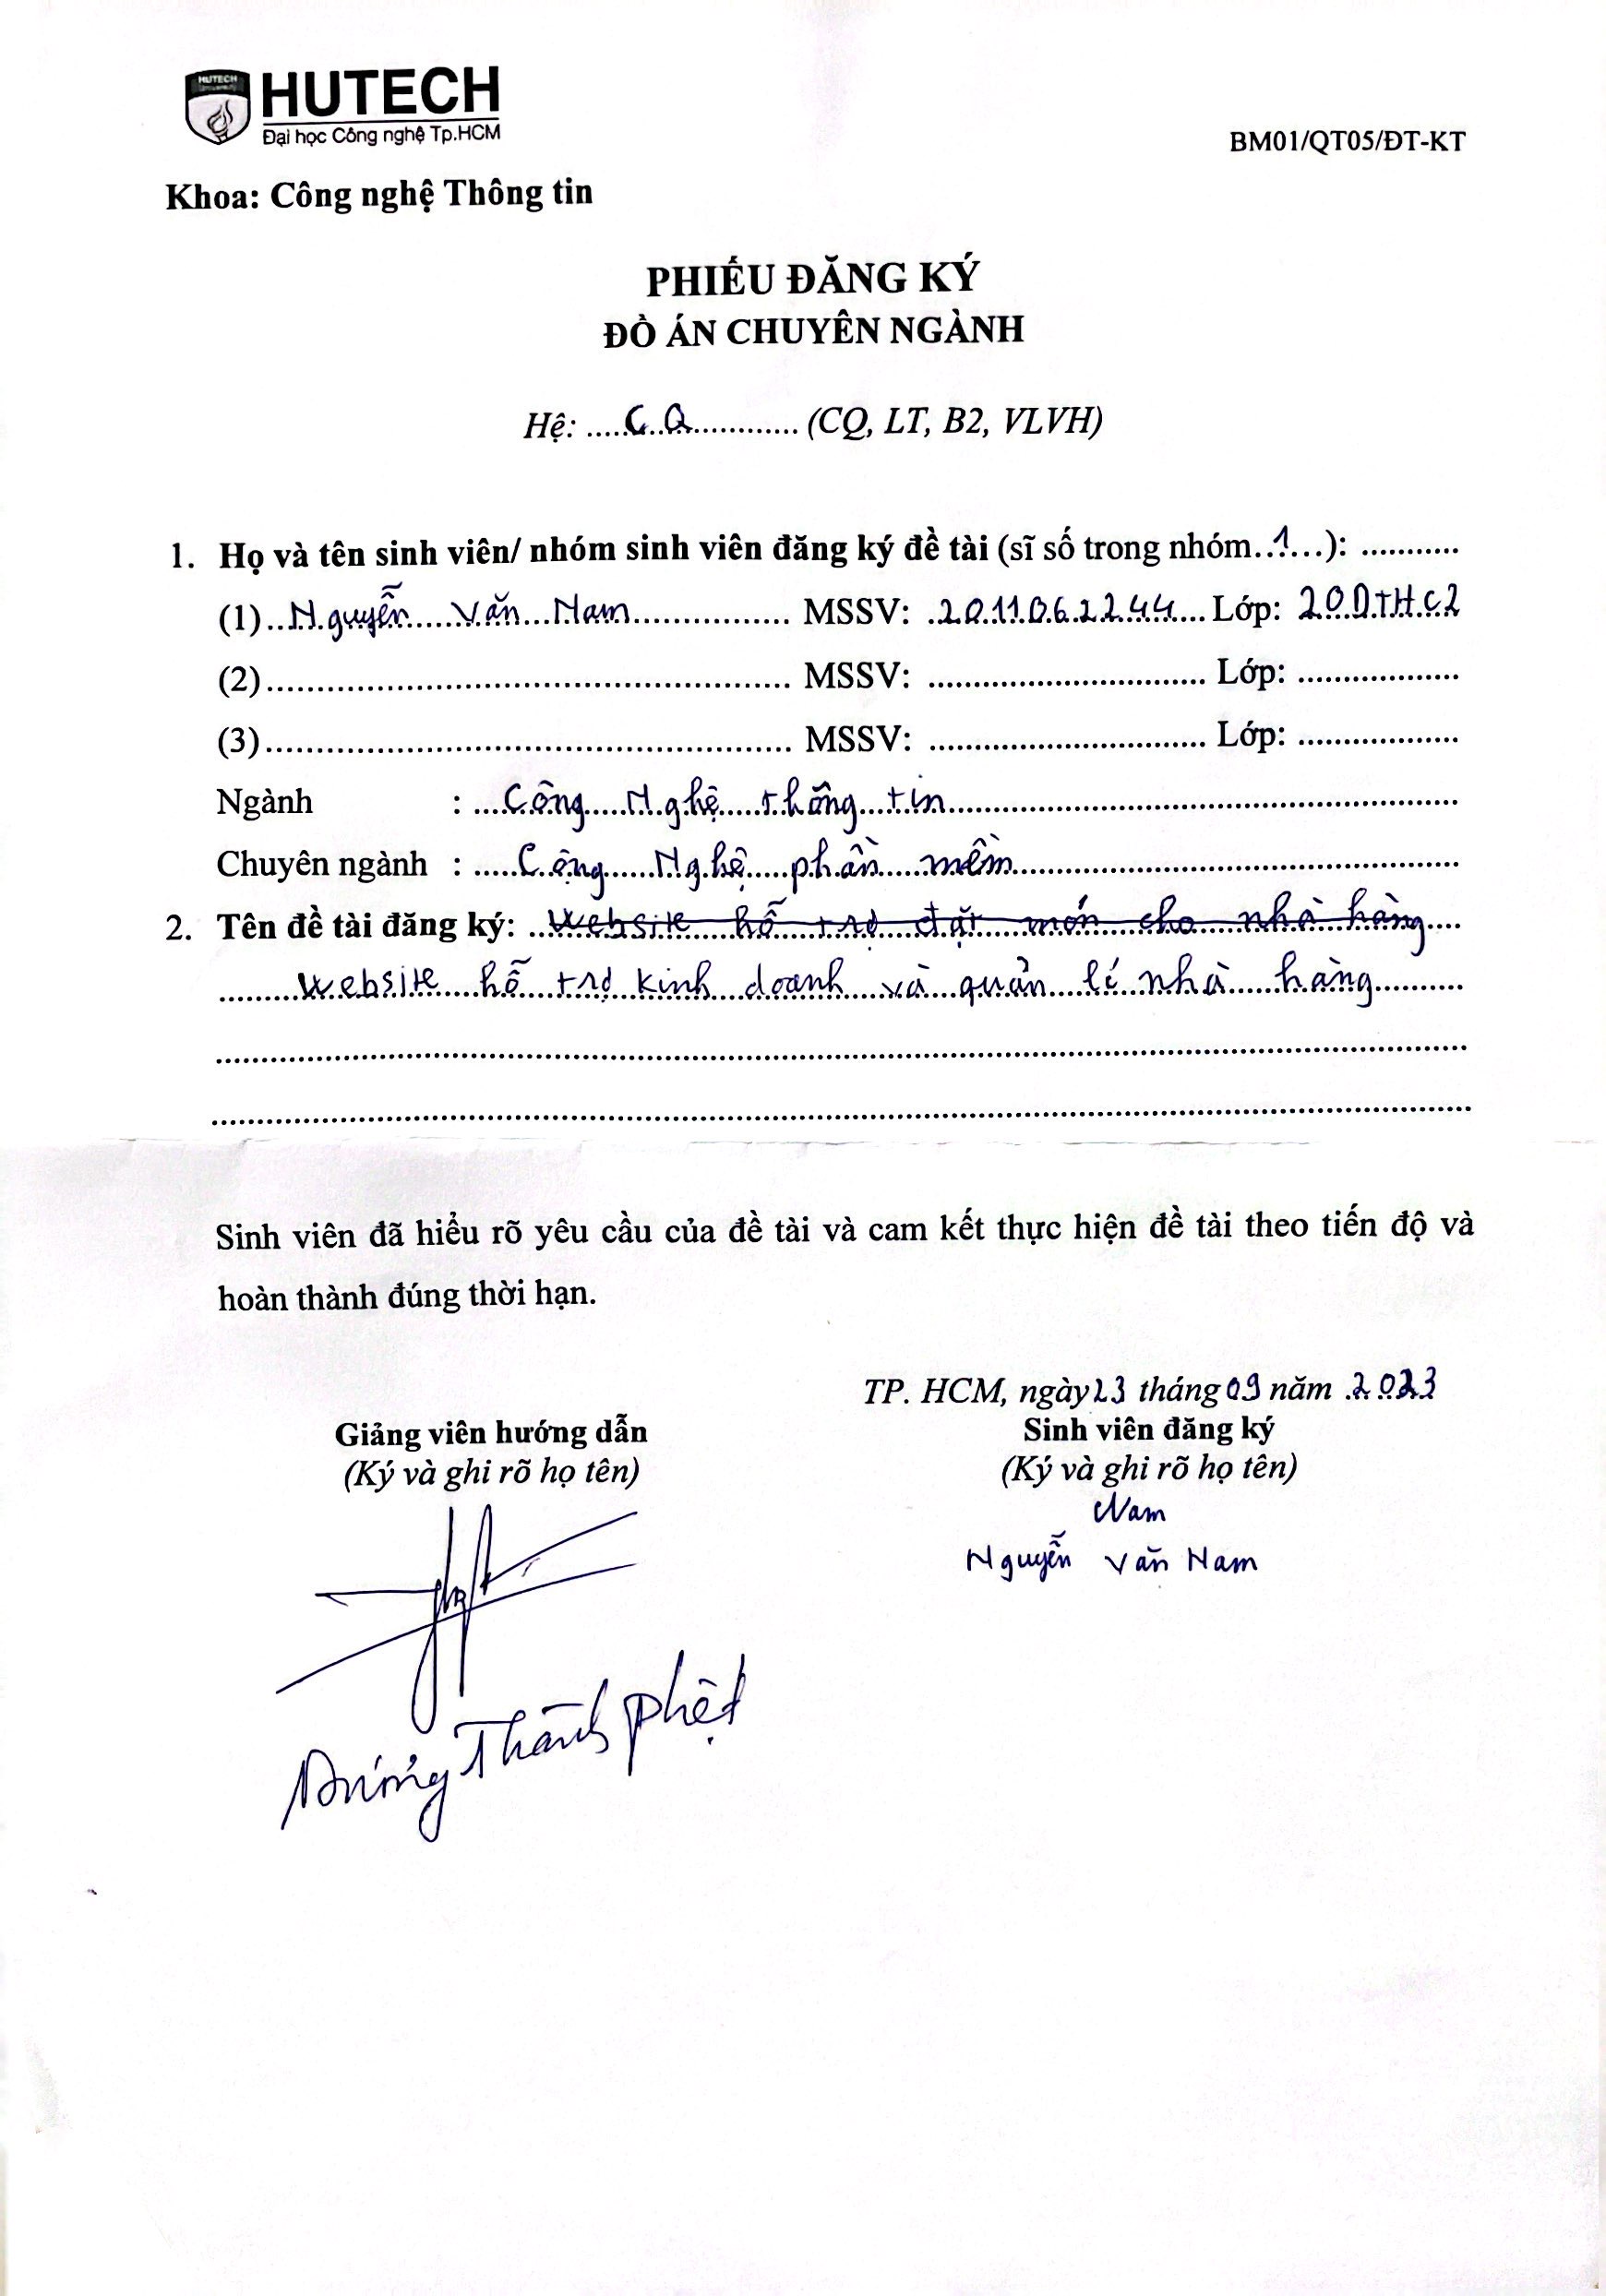 HUTECH
HUTECH
Đại học Công nghệ Tp.HCM
BM01/QT05/ĐT-KT
Khoa: Công nghệ Thông tin
PHIẾU ĐĂNG KÝ
ĐỒ ÁN CHUYÊN NGÀNH
Hệ: .....CQ............ (CQ, LT, B2, VLVH)
1. Họ và tên sinh viên/ nhóm sinh viên đăng ký đề tài (sĩ số trong nhóm..1...): ...........
(1)..Nguyễn Văn Nam................ MSSV: .2011062244... Lớp: 20DTHC2
(2).................................................... MSSV: ............................ Lớp: ................
(3).................................................... MSSV: ............................ Lớp: ................
Ngành : ...Công Nghệ thông tin..................................................
Chuyên ngành : .....Công Nghệ phần mềm............................................
2. Tên đề tài đăng ký: ..Website hỗ trợ đặt món cho nhà hàng....
........Website hỗ trợ kinh doanh và quản lí nhà hàng.........
..............................................................................................................................
..............................................................................................................................
Sinh viên đã hiểu rõ yêu cầu của đề tài và cam kết thực hiện đề tài theo tiến độ và
hoàn thành đúng thời hạn.
TP. HCM, ngày 23 tháng 09 năm .2023
Giảng viên hướng dẫn
(Ký và ghi rõ họ tên)
Sinh viên đăng ký
(Ký và ghi rõ họ tên)
Nam
Nguyễn Văn Nam
Dương Thành Phết